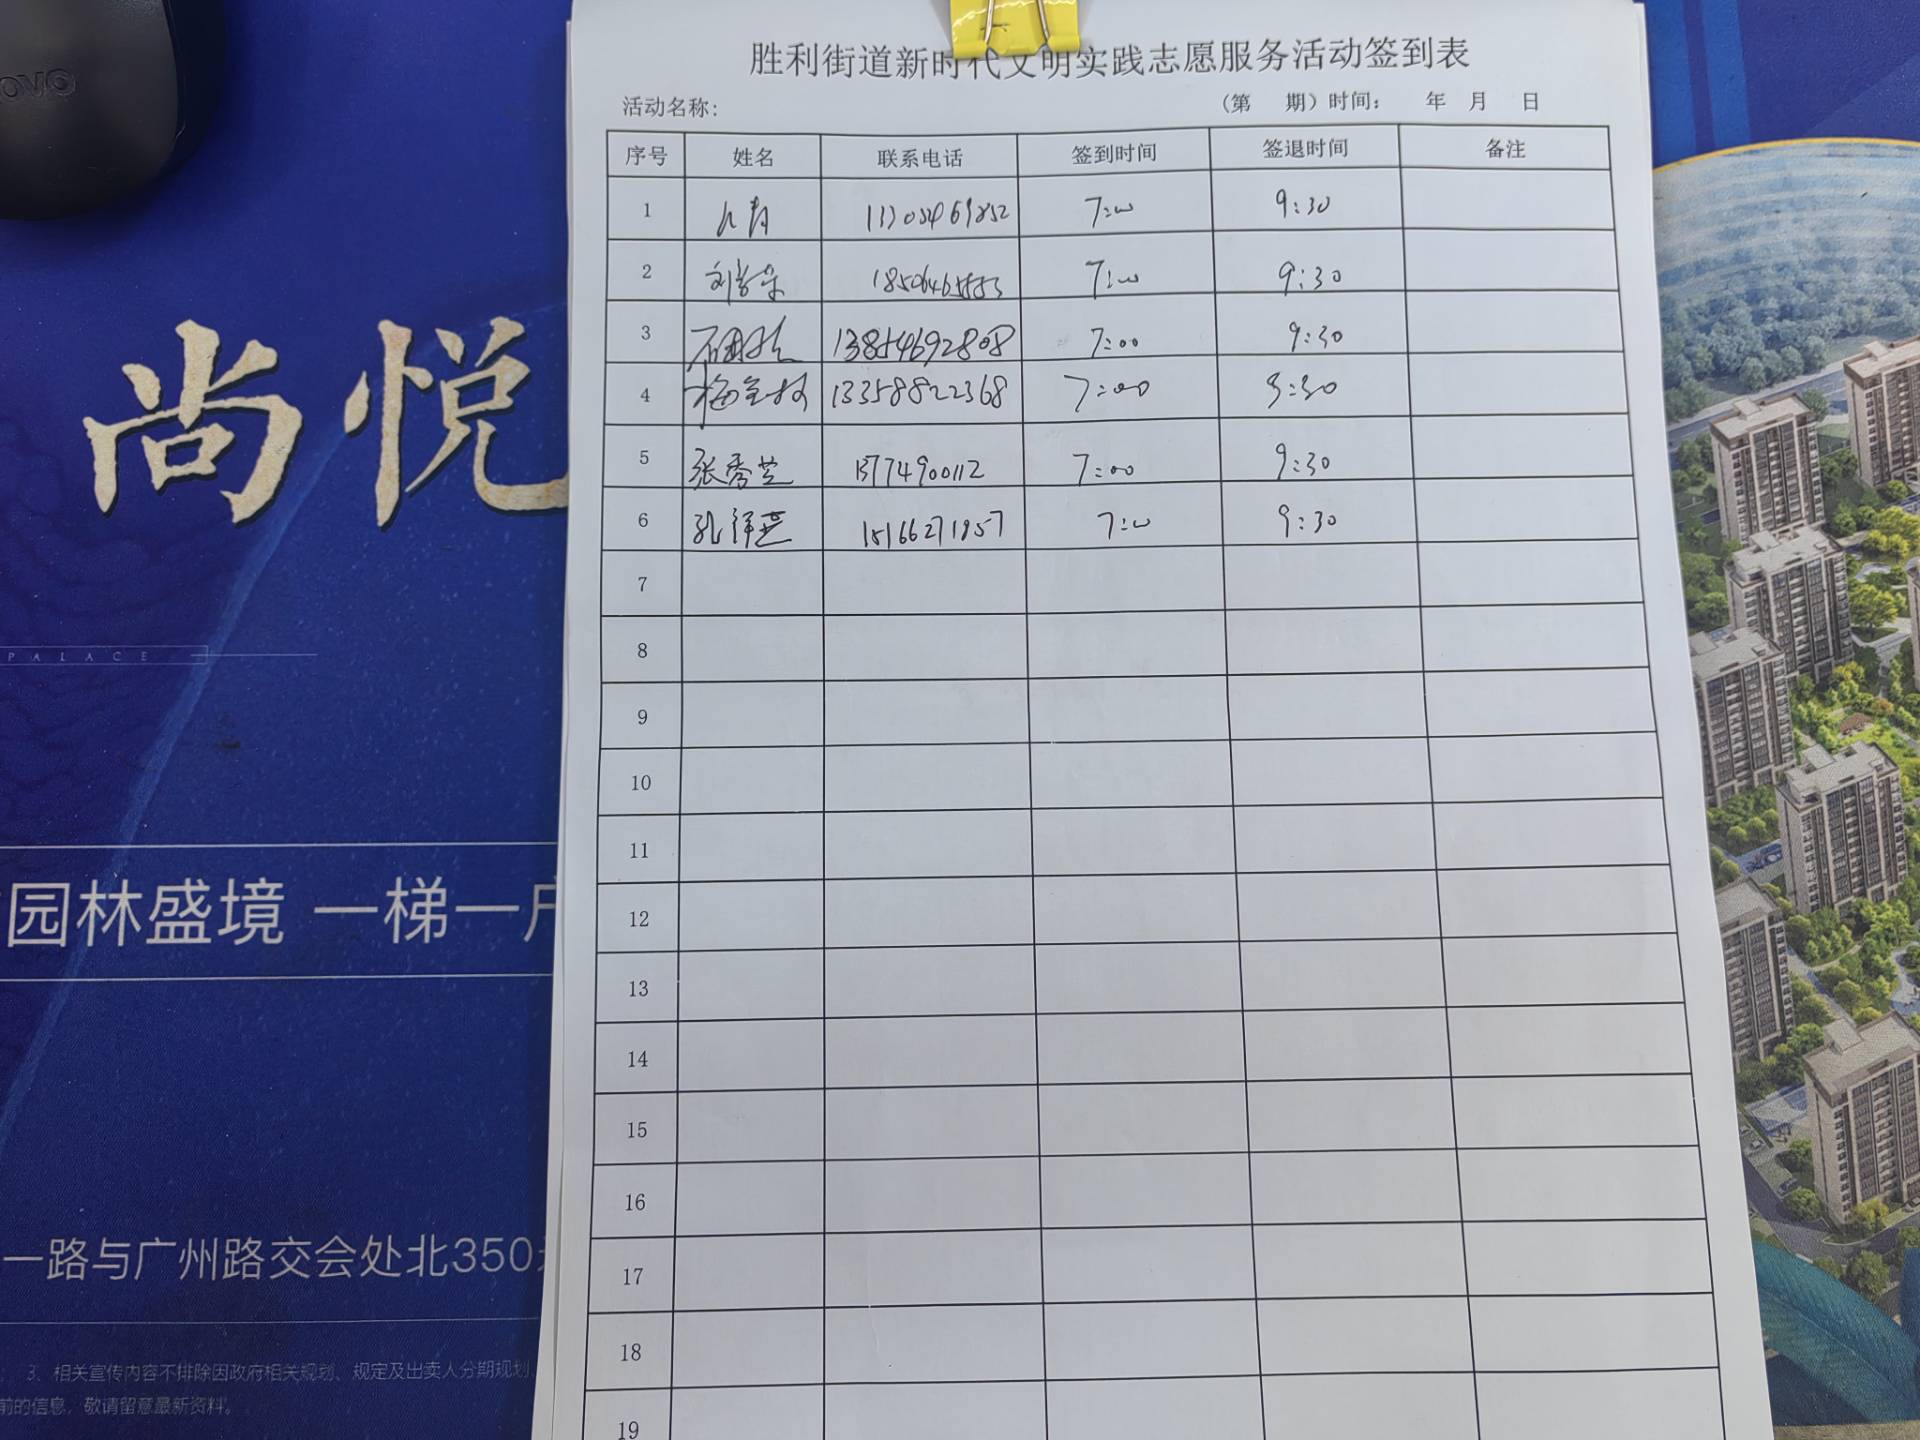 胜利街道新时代文明实践志愿服务活动签到表
活动名称: （第 期）时间: 年 月 日
序号 姓名 联系电话 签到时间 签退时间 备注
1 7:00 9:30
2 7:00 9:30
3 13854692808 7:00 9:30
4 13358822368 7:00 9:30
5 张秀兰 13774900112 7:00 9:30
6 15166271957 7:00 9:30
7
8
9
10
11
12
13
14
15
16
17
18
19
ovo
尚悦
PALACE
园林盛境 一梯一户
一路与广州路交会处北350
3、相关宣传内容不排除因政府相关规划、规定及出卖人分期规划
前的信息，敬请留意最新资料。